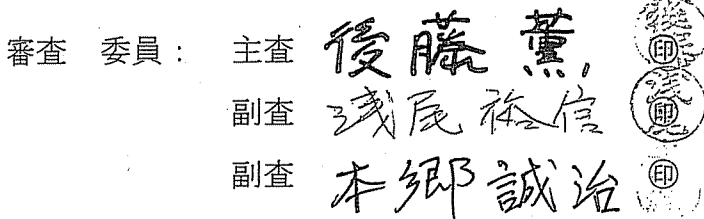 審査 委員: 主査 後藤 薫 印
副査 浅尾 裕信 印
副査 本郷 誠治 印